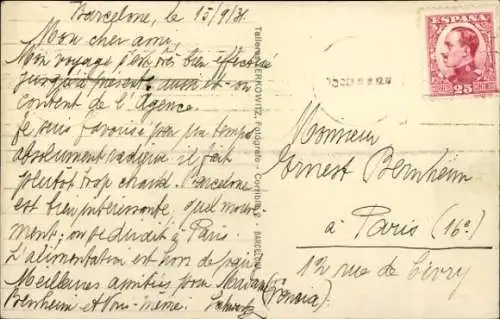 Barcelone, le 15/9/31.
Mon cher ami,
Mon voyage s'est très bien effectué
jusqu'à présent aussi est-on
content de l'Agence.
Je suis favorisé par un temps
absolument radieux il fait
plutôt trop chaud. Barcelone
est bien intéressante, quel mouve-
ment; on se dirait à Paris.
L'alimentation est hors de pair
Meilleures amitiés pour Madame
Bernheim et Vous-même.
Talleres ZERKOWITZ, Fotógrafo - BARCELONA
ESPAÑA
25
Monsieur
Ernest Bernheim
à Paris (16e)
12 rue de
(Francia)